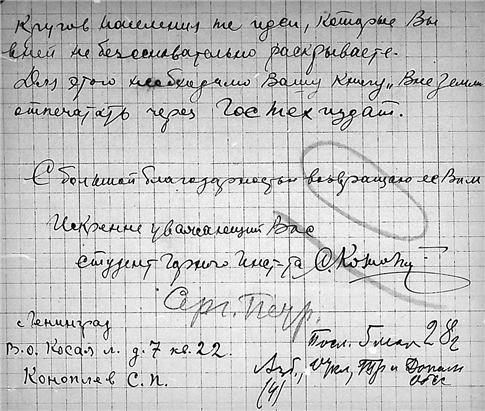 кругов населения те идеи, которые Вы
в ней не безосновательно раскрываете.
Для этого необходимо Вашу книгу „Вне Земли
отпечатать через Гостехиздат.
С большой благодарностью возвращаю ее Вам
Искренне уважающий Вас
студент Горного Инст-та
Серг. Петр.
г. Ленинград
В.О. Косая л. д. 7 кв. 22.
Коноплев С. П.
Посл. 5 мая 28 г
(4)